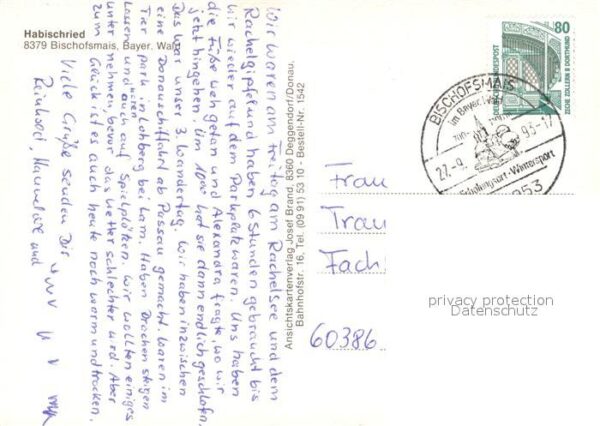 Habischried
8379 Bischofsmais, Bayer. Wald
Wir waren am Freitag am Rachelsee und dem
Rachelgipfel und haben 6 Stunden gebraucht bis
wir wieder auf dem Parkplatz waren. Uns haben
die Füße weh getan und Alexandra fragte, wo wir
jetzt hingehen. Um 10 hat sie dann endlich geschlafen.
Das war unser 3. Wandertag. Wir haben inzwischen
eine Donauschiffahrt ab Passau gemacht. Waren im
Tierpark in Lohberg bei Lam. Haben Drachen steigen
lassen und waren auch auf Spielplätzen. Wir wollten einiges
unternehmen, bevor das Wetter schlechter wird. Aber
zum Glück ist es auch heute noch warm und trocken.
Viele Grüße senden Dir
Reinhold, Hannelore und
Ansichtskartenverlag Josef Brand, 8360 Deggendorf/Donau,
Bahnhofstr. 16, Tel. (09 91) 53 10 - Bestell-Nr. 1542
80
DEUTSCHE BUNDESPOST
ZECHE ZOLLERN II DORTMUND
BISCHOFSMAIS
im Bayer. Wald
27.-9. 93-17
Erholungsort-Wintersport
Frau
Trau
Fach
60386
privacy protection
Datenschutz